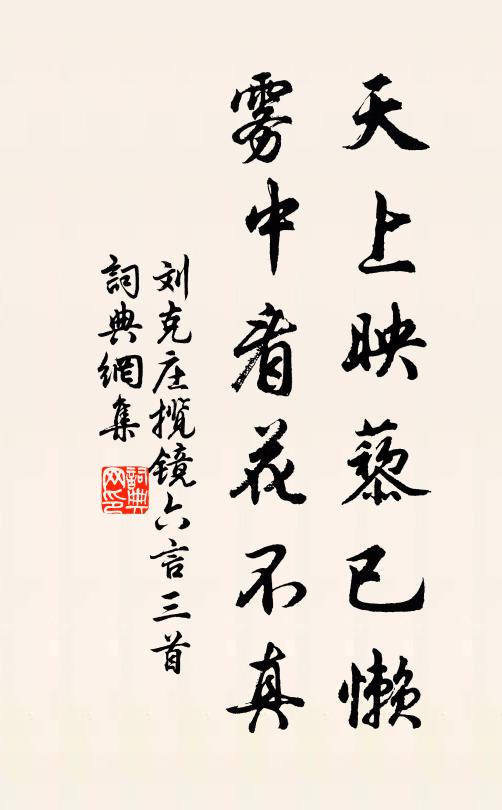 天上映藜已懒
雾中看花不真
刘克庄揽镜六言三首
詞典網集
詞典网印